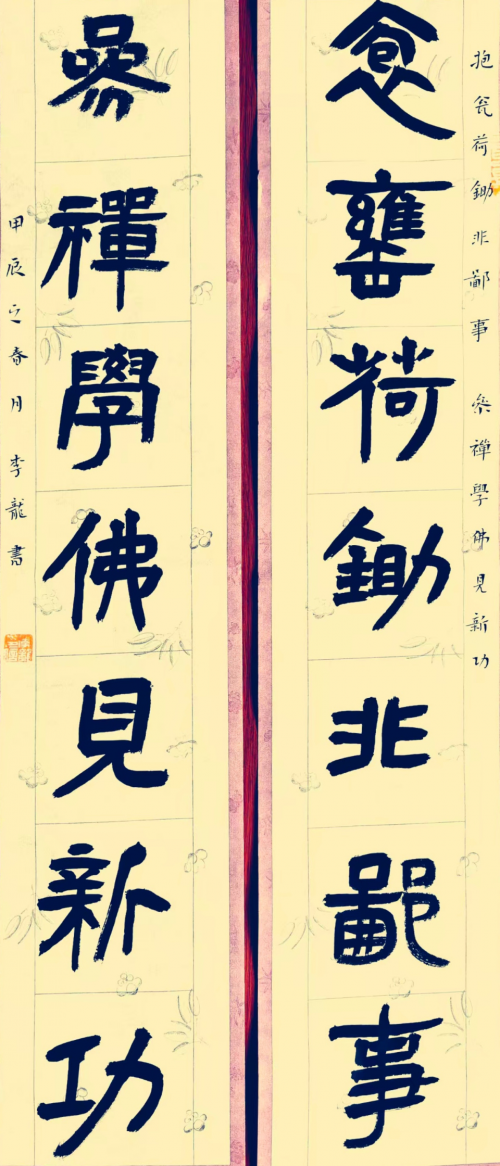 抱瓮荷鋤非鄙事 參禪學佛見新功
罋荷鋤非鄙事
參禪學佛見新功
甲辰之春月李龍書